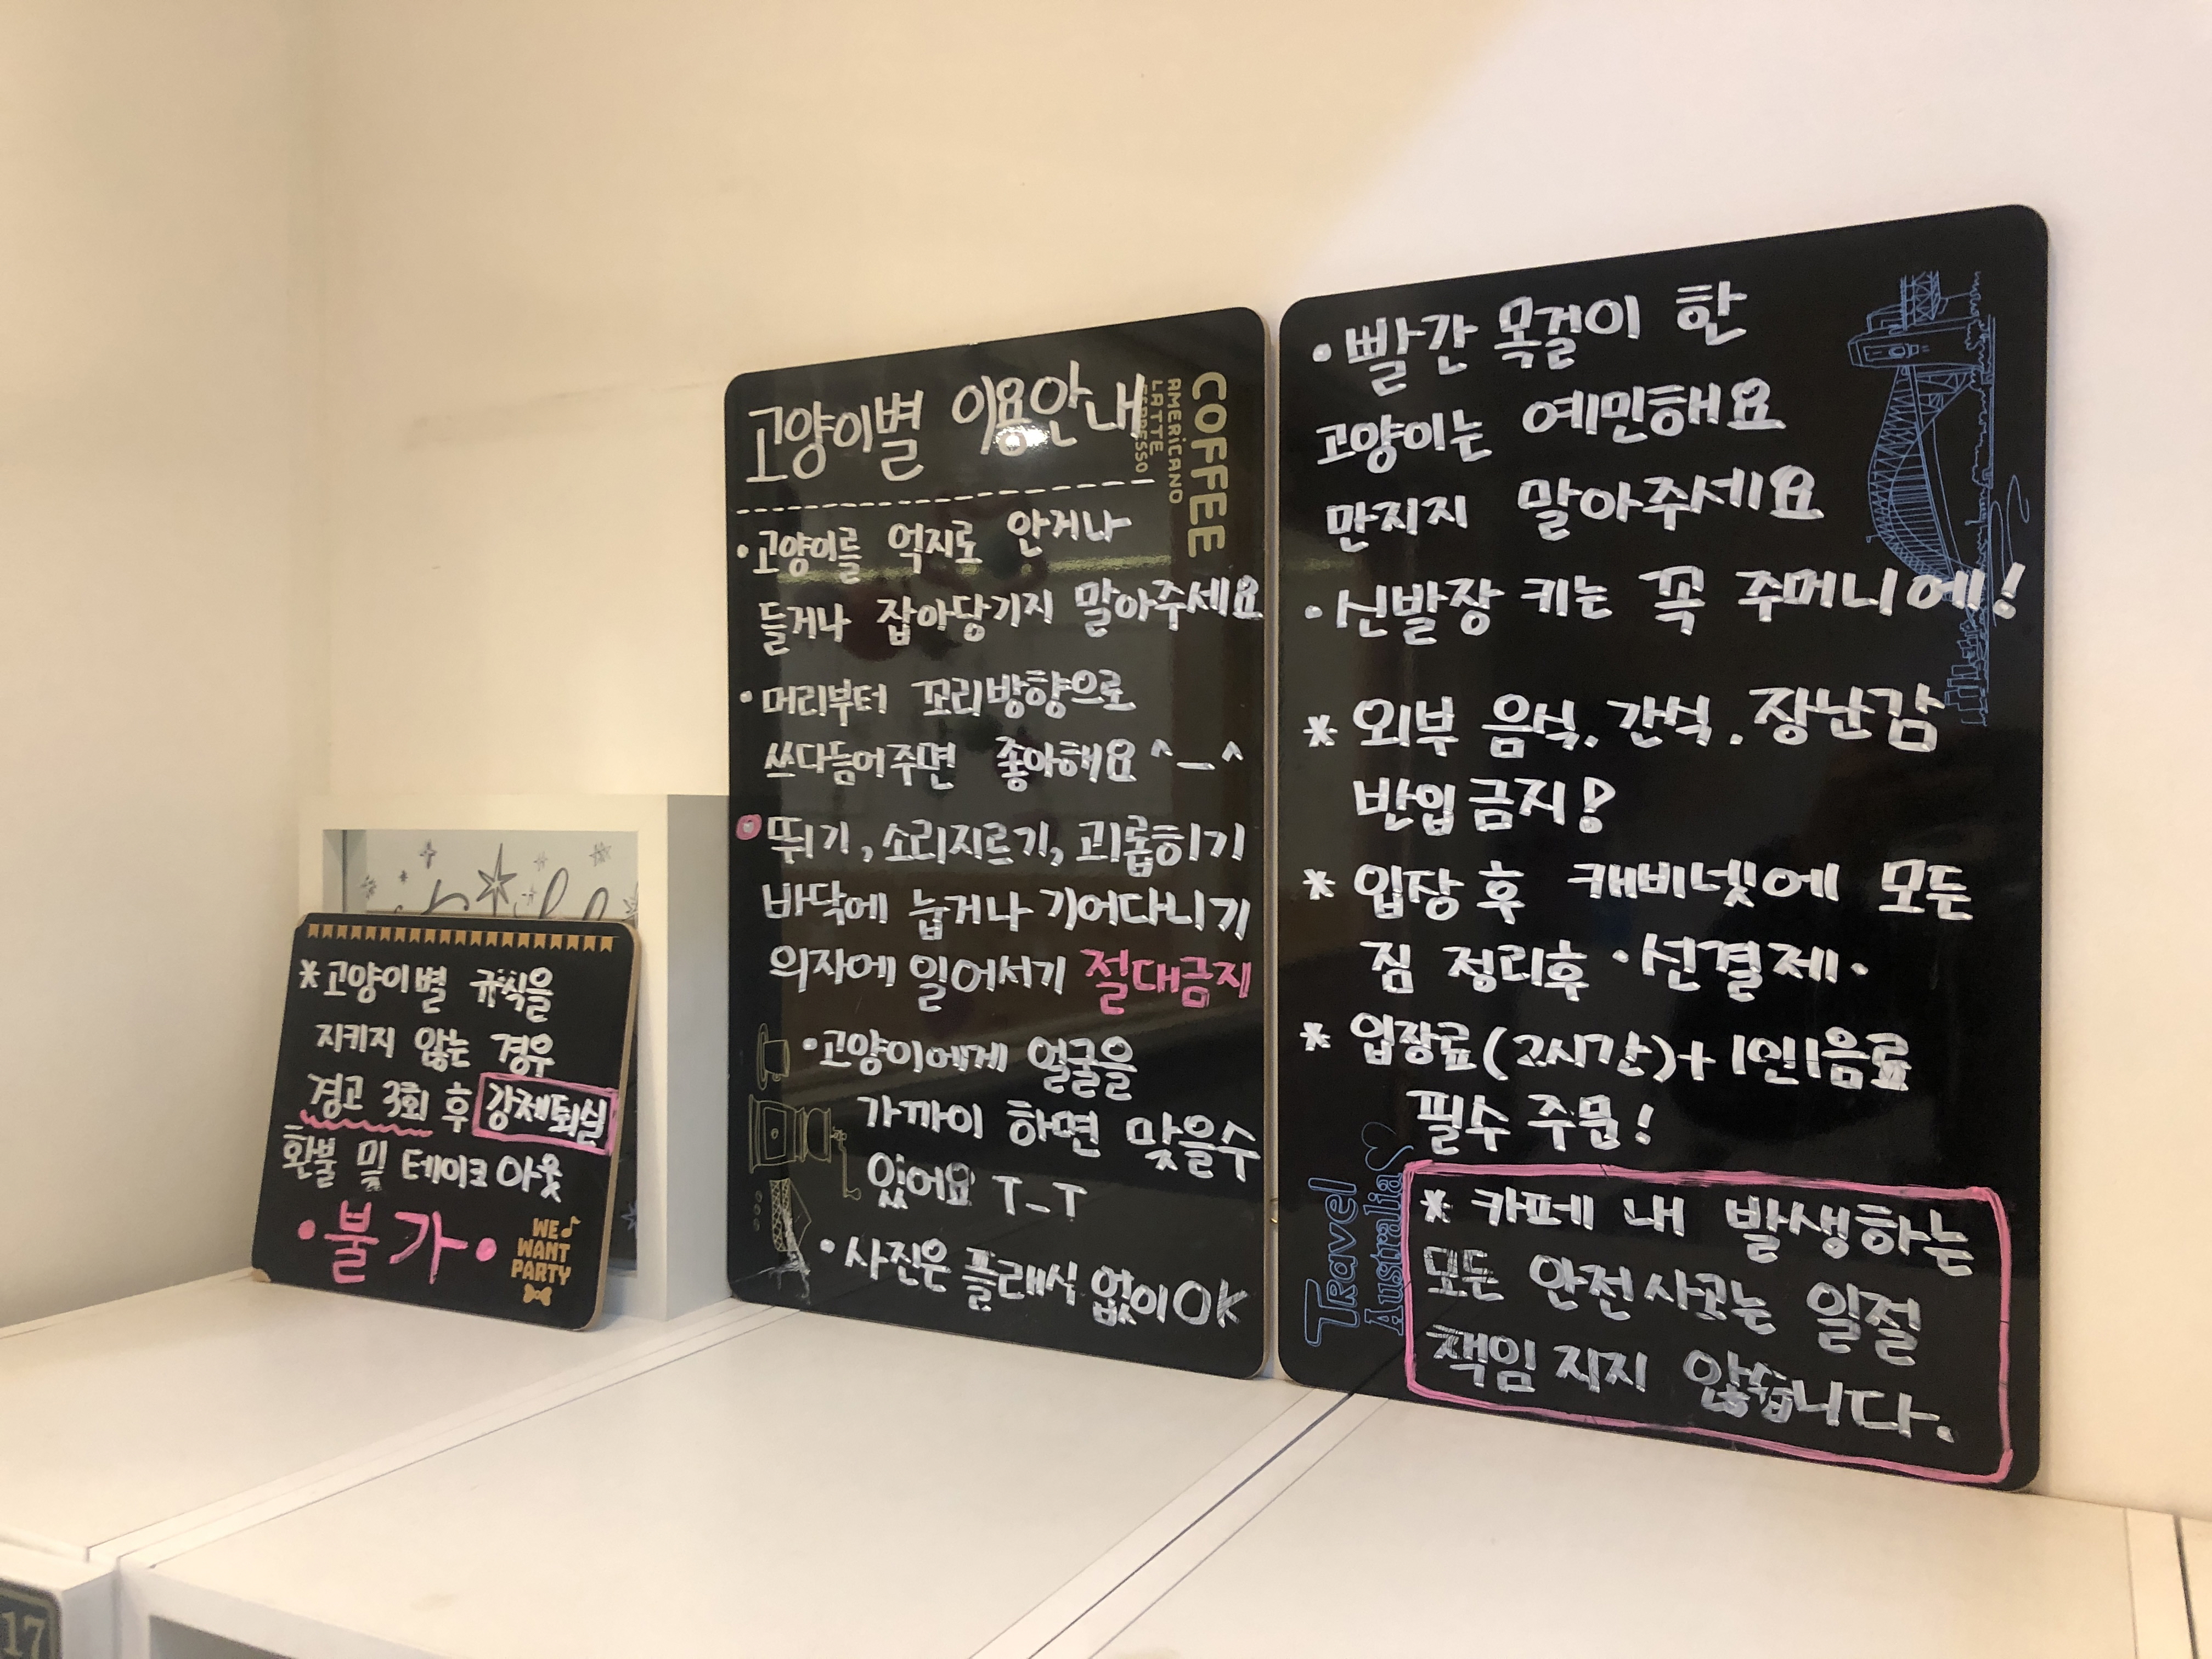 *고양이별 규칙을
지키지 않는 경우
경고 3회 후 강제퇴실
환불 및 테이크아웃
•불가•
WE♪
WANT
PARTY
고양이별 이용안내
COFFEE
AMERICANO
LATTE
•고양이를 억지로 안거나
들거나 잡아당기지 말아주세요
•머리부터 꼬리방향으로
쓰다듬어주면 좋아해요 ^_^
•뛰기, 소리지르기, 괴롭히기
바닥에 눕거나 기어다니기
의자에 일어서기 절대금지
•고양이에게 얼굴을
가까이 하면 맞을수
있어요 T_T
•사진은 플래식 없이 OK
•빨간 목걸이 한
고양이는 예민해요
만지지 말아주세요
•신발장 키는 꼭 주머니에!
*외부 음식. 간식. 장난감
반입금지!
*입장 후 캐비넷에 모든
짐 정리후 •선결제•
*입장료(2시간)+1인1음료
필수 주문!
Travel
Australia
*카페 내 발생하는
모든 안전사고는 일절
책임 지지 않습니다.
17